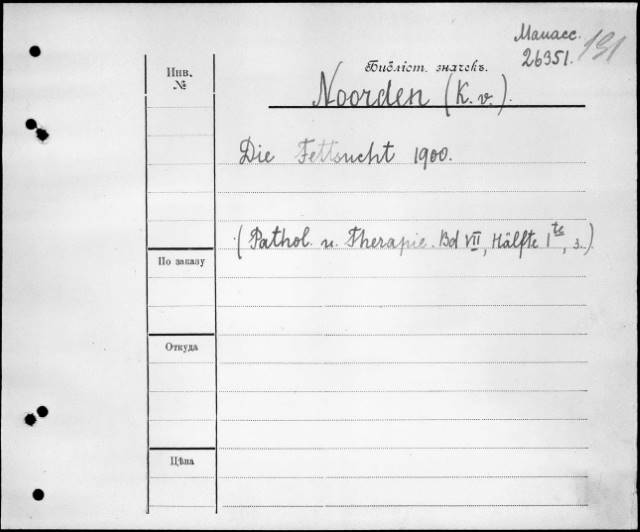 Манасс.
26351. 151
Библіот. значекъ.
Инв.
№
Noorden (K. v.).
Die Fettsucht 1900.
(Pathol. u. Therapie. Bd VII, Hälfte 1te, 3.)
По заказу
Откуда
Цѣна